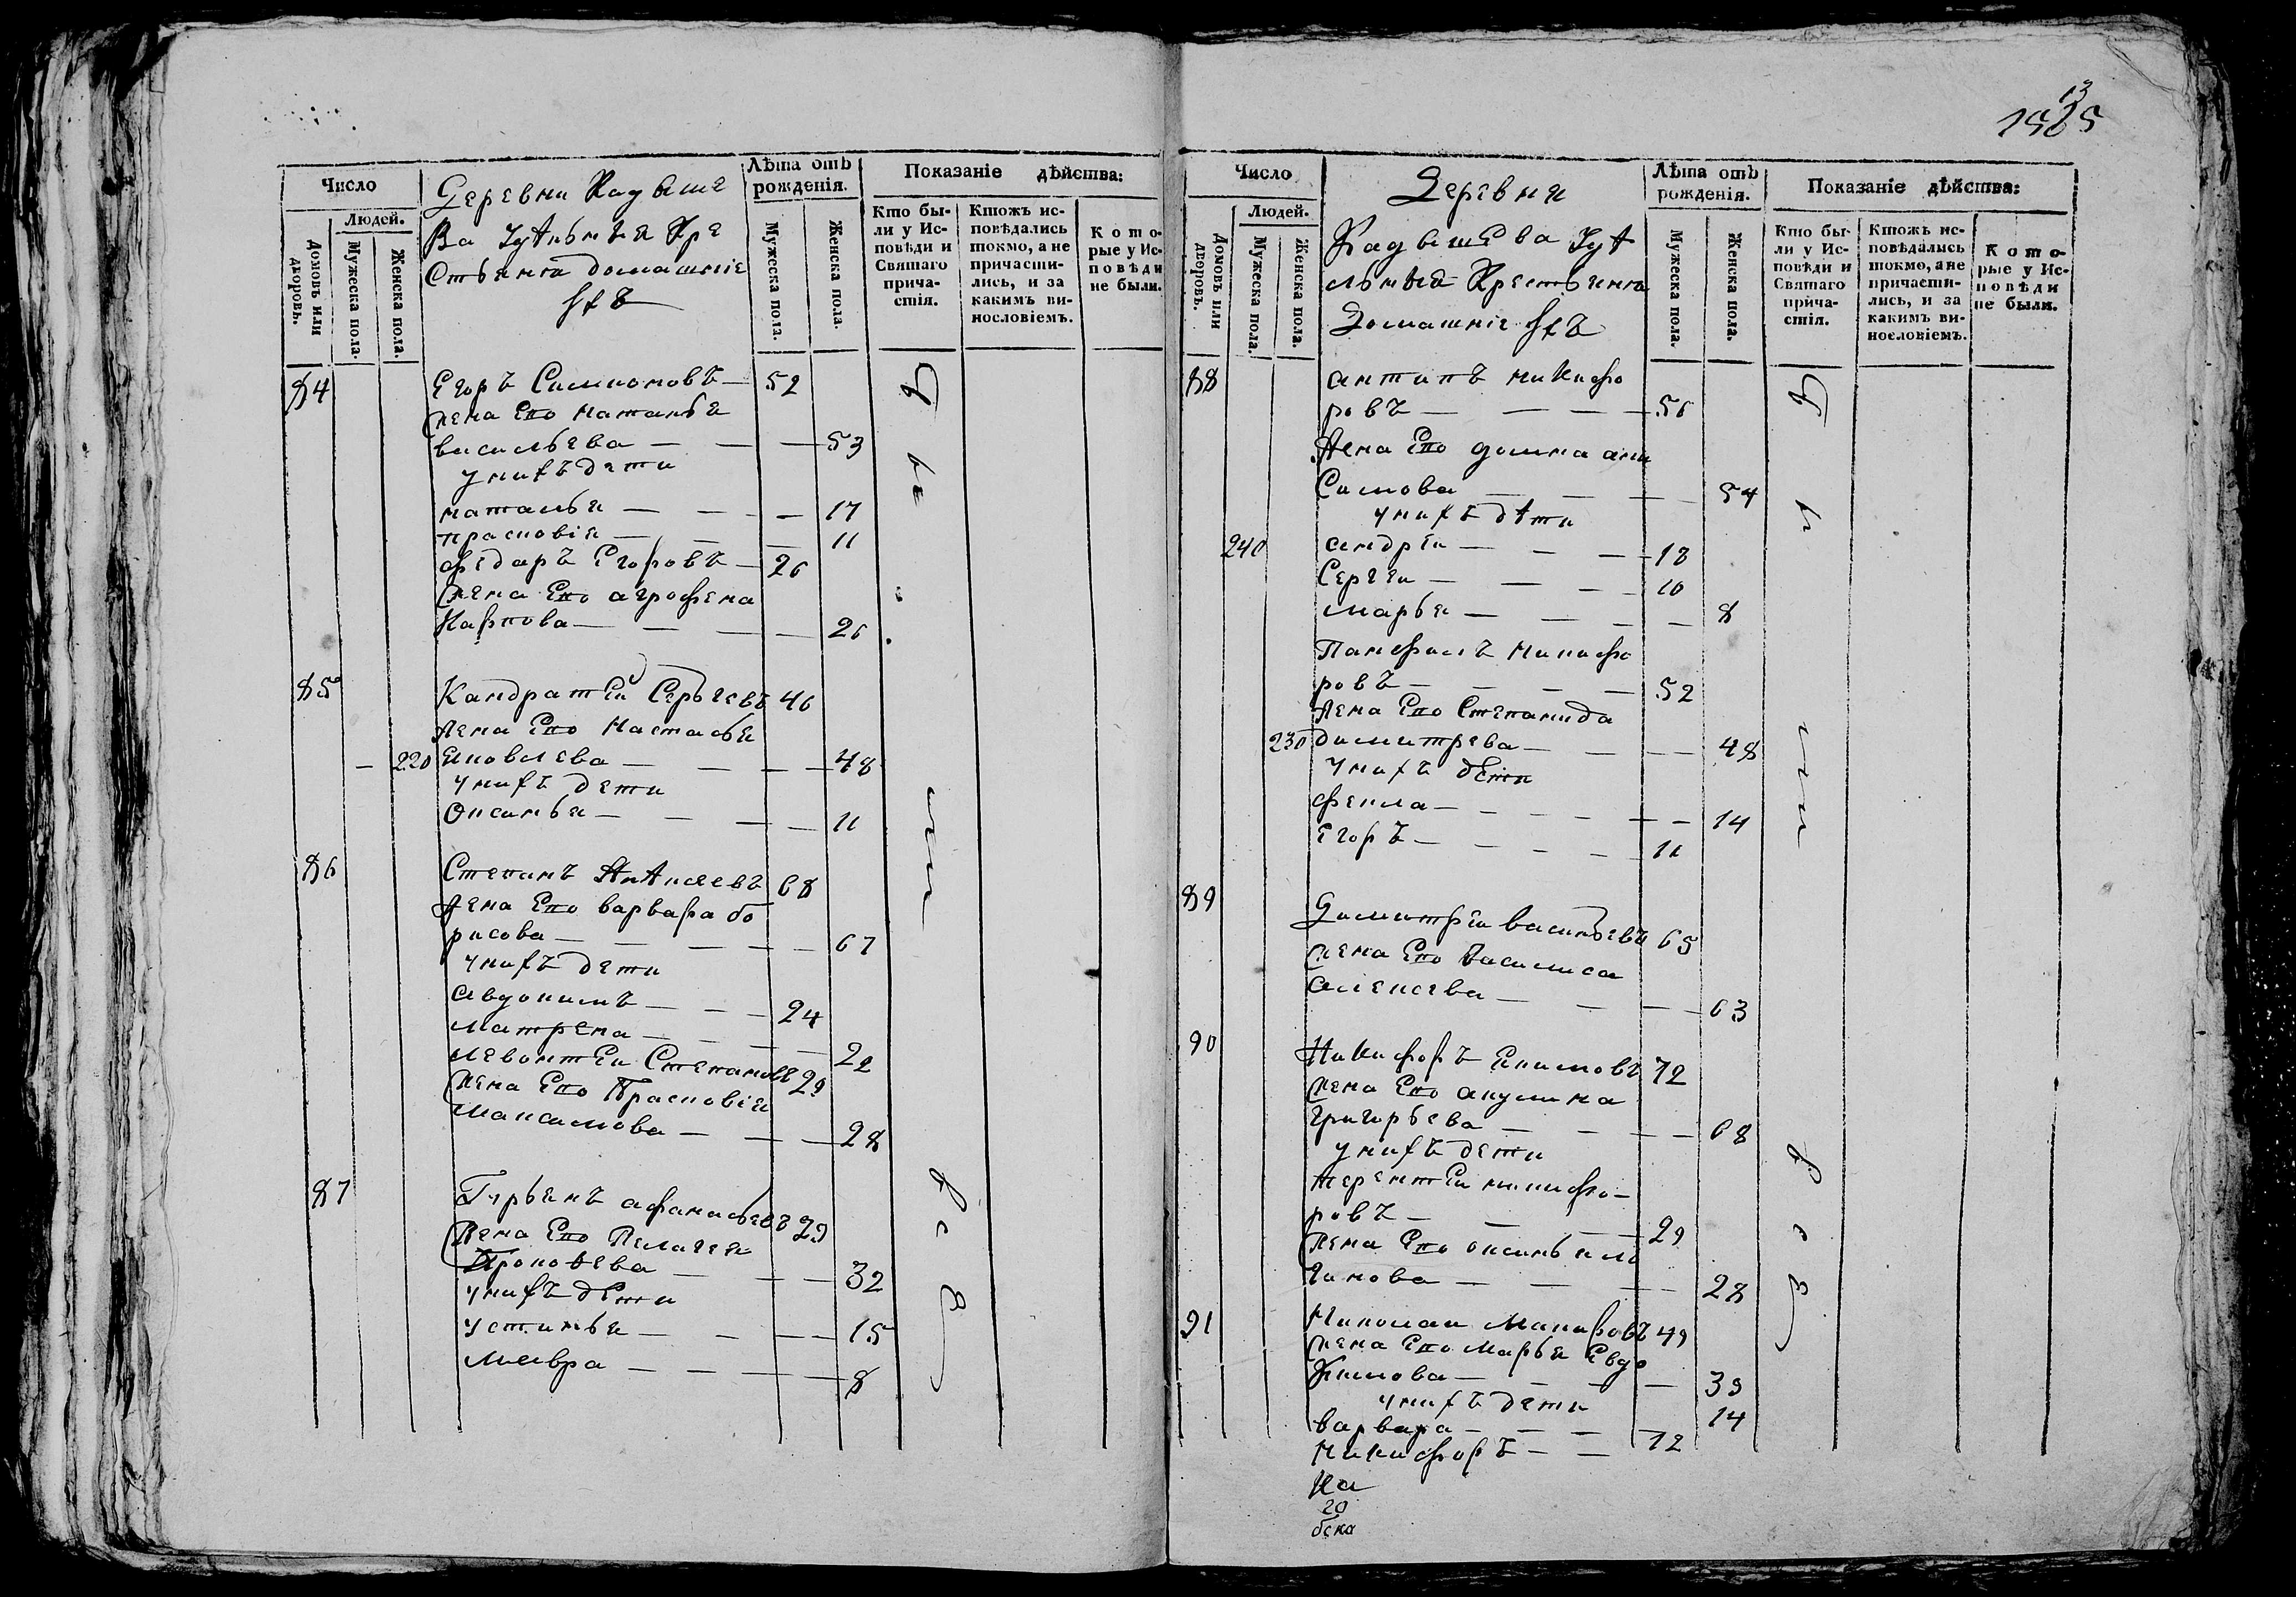 Число
Людей.
Домовъ или дворовъ.
Мужеска пола.
Женска пола.
Деревни Кадыше
ва Удѣльныя Кре
стьяна домашніе
ихъ
Лѣта отъ
рожденія.
Мужеска пола.
Женска пола.
Показаніе дѣйства:
Кто бы-
ли у Ис-
повѣди и
Святаго
прича-
стія.
Ктожъ ис-
повѣдались
токмо, а не
причасти-
лись, и за
какимъ ви-
нословіемъ.
Кото-
рые у Ис-
повѣди
не были.
84 Егоръ Симионовъ — 52
жена Его наталья
васильева — — — 53
у нихъ дети
наталья — — — 17
прасковія — — — 11
федаръ Егоровъ — 26
жена Его агрофена
Карпова — — — 26
85 Кандратей Сергеевъ 46
жена Его Настасья
— 220 Яковлева — — — 48
у нихъ дети
Оксинья — — — 11
86 Степанъ Алѣксеевъ 68
жена Его варвара бо
рисова — — — 67
у нихъ дети
Авдокимъ — — — 24
Матрена — — — 22
Левонтей Степановъ 29
жена Его Прасковія
Максимова — — — 28
87 Гурьянъ афанасьевъ 29
жена Его Пелагея
Прокофьева — — — 32
у нихъ дети
устинья — — — 15
Мавра — — — 8
1525
13
Число
Людей.
Домовъ или дворовъ.
Мужеска пола.
Женска пола.
Деревня
Кадышева Удѣ
льныя Крестьяна
Домашніе ихъ
Лѣта отъ
рожденія.
Мужеска пола.
Женска пола.
Показаніе дѣйства:
Кто бы-
ли у Ис-
повѣди и
Святаго
прича-
стія.
Ктожъ ис-
повѣдались
токмо, а не
причасти-
лись, и за
какимъ ви-
нословіемъ.
Кото-
рые у Ис-
повѣди
не были.
88 антипъ никифо
ровъ — — — 56
жена Его домна ани
симова — — — 54
у нихъ дѣти
240 андрей — — — 18
Сергеи — — — 10
марья — — — 8
Панфилъ никифо
ровъ — — — 52
жена Его Степанида
230 димитрева — — — 48
у нихъ дети
фекла — — — 14
Егоръ — — — 11
89 Димитрей васильевъ 65
жена Его василиса
алексева — — — 63
90 Никифоръ Екимовъ 72
жена Его акулина
григорьева — — — 68
у нихъ дети
терентей никифо-
ровъ — — — 29
жена Его оксинья ло
гинова — — — 28
91 Николаи Макаровъ 49
жена Его Марья Евдо
кимова — — — 39
у нихъ дети
варвара — — — 14
Никифоръ — — 12